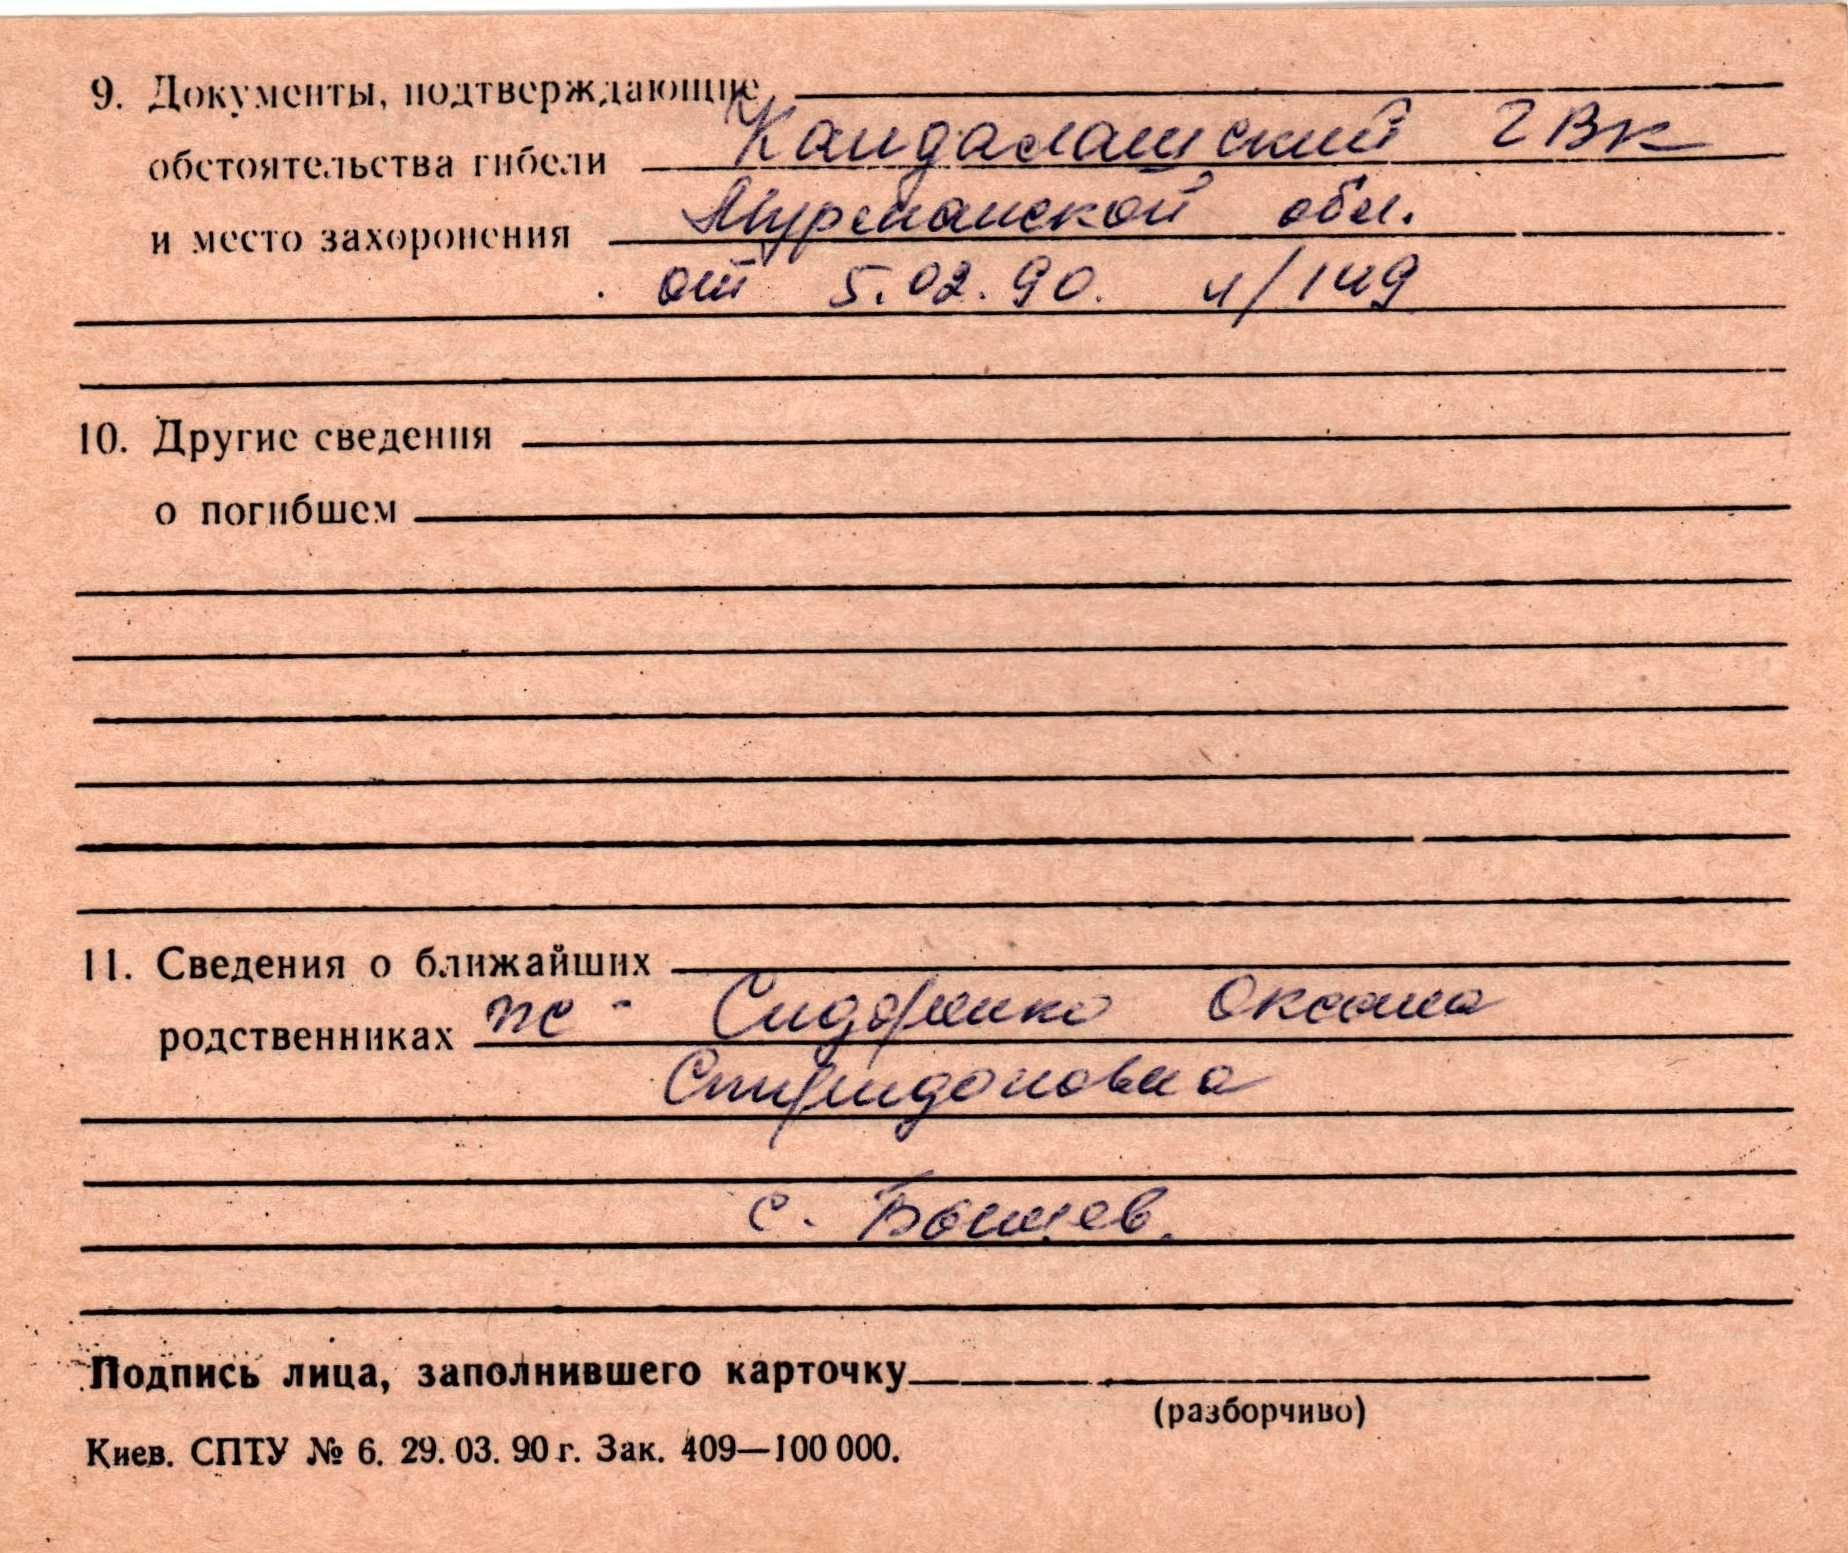 9. Документы, подтверждающие
Кандалашский ГВК
обстоятельства гибели
Мурманской обл.
и место захоронения
от 5.02.90. 4/149
10. Другие сведения
о погибшем
11. Сведения о ближайших
родственниках ж - Сидоренко Оксана
Спиридоновна
с. Бышев.
Подпись лица, заполнившего карточку
(разборчиво)
Киев. СПТУ № 6. 29. 03. 90 г. Зак. 409—100 000.